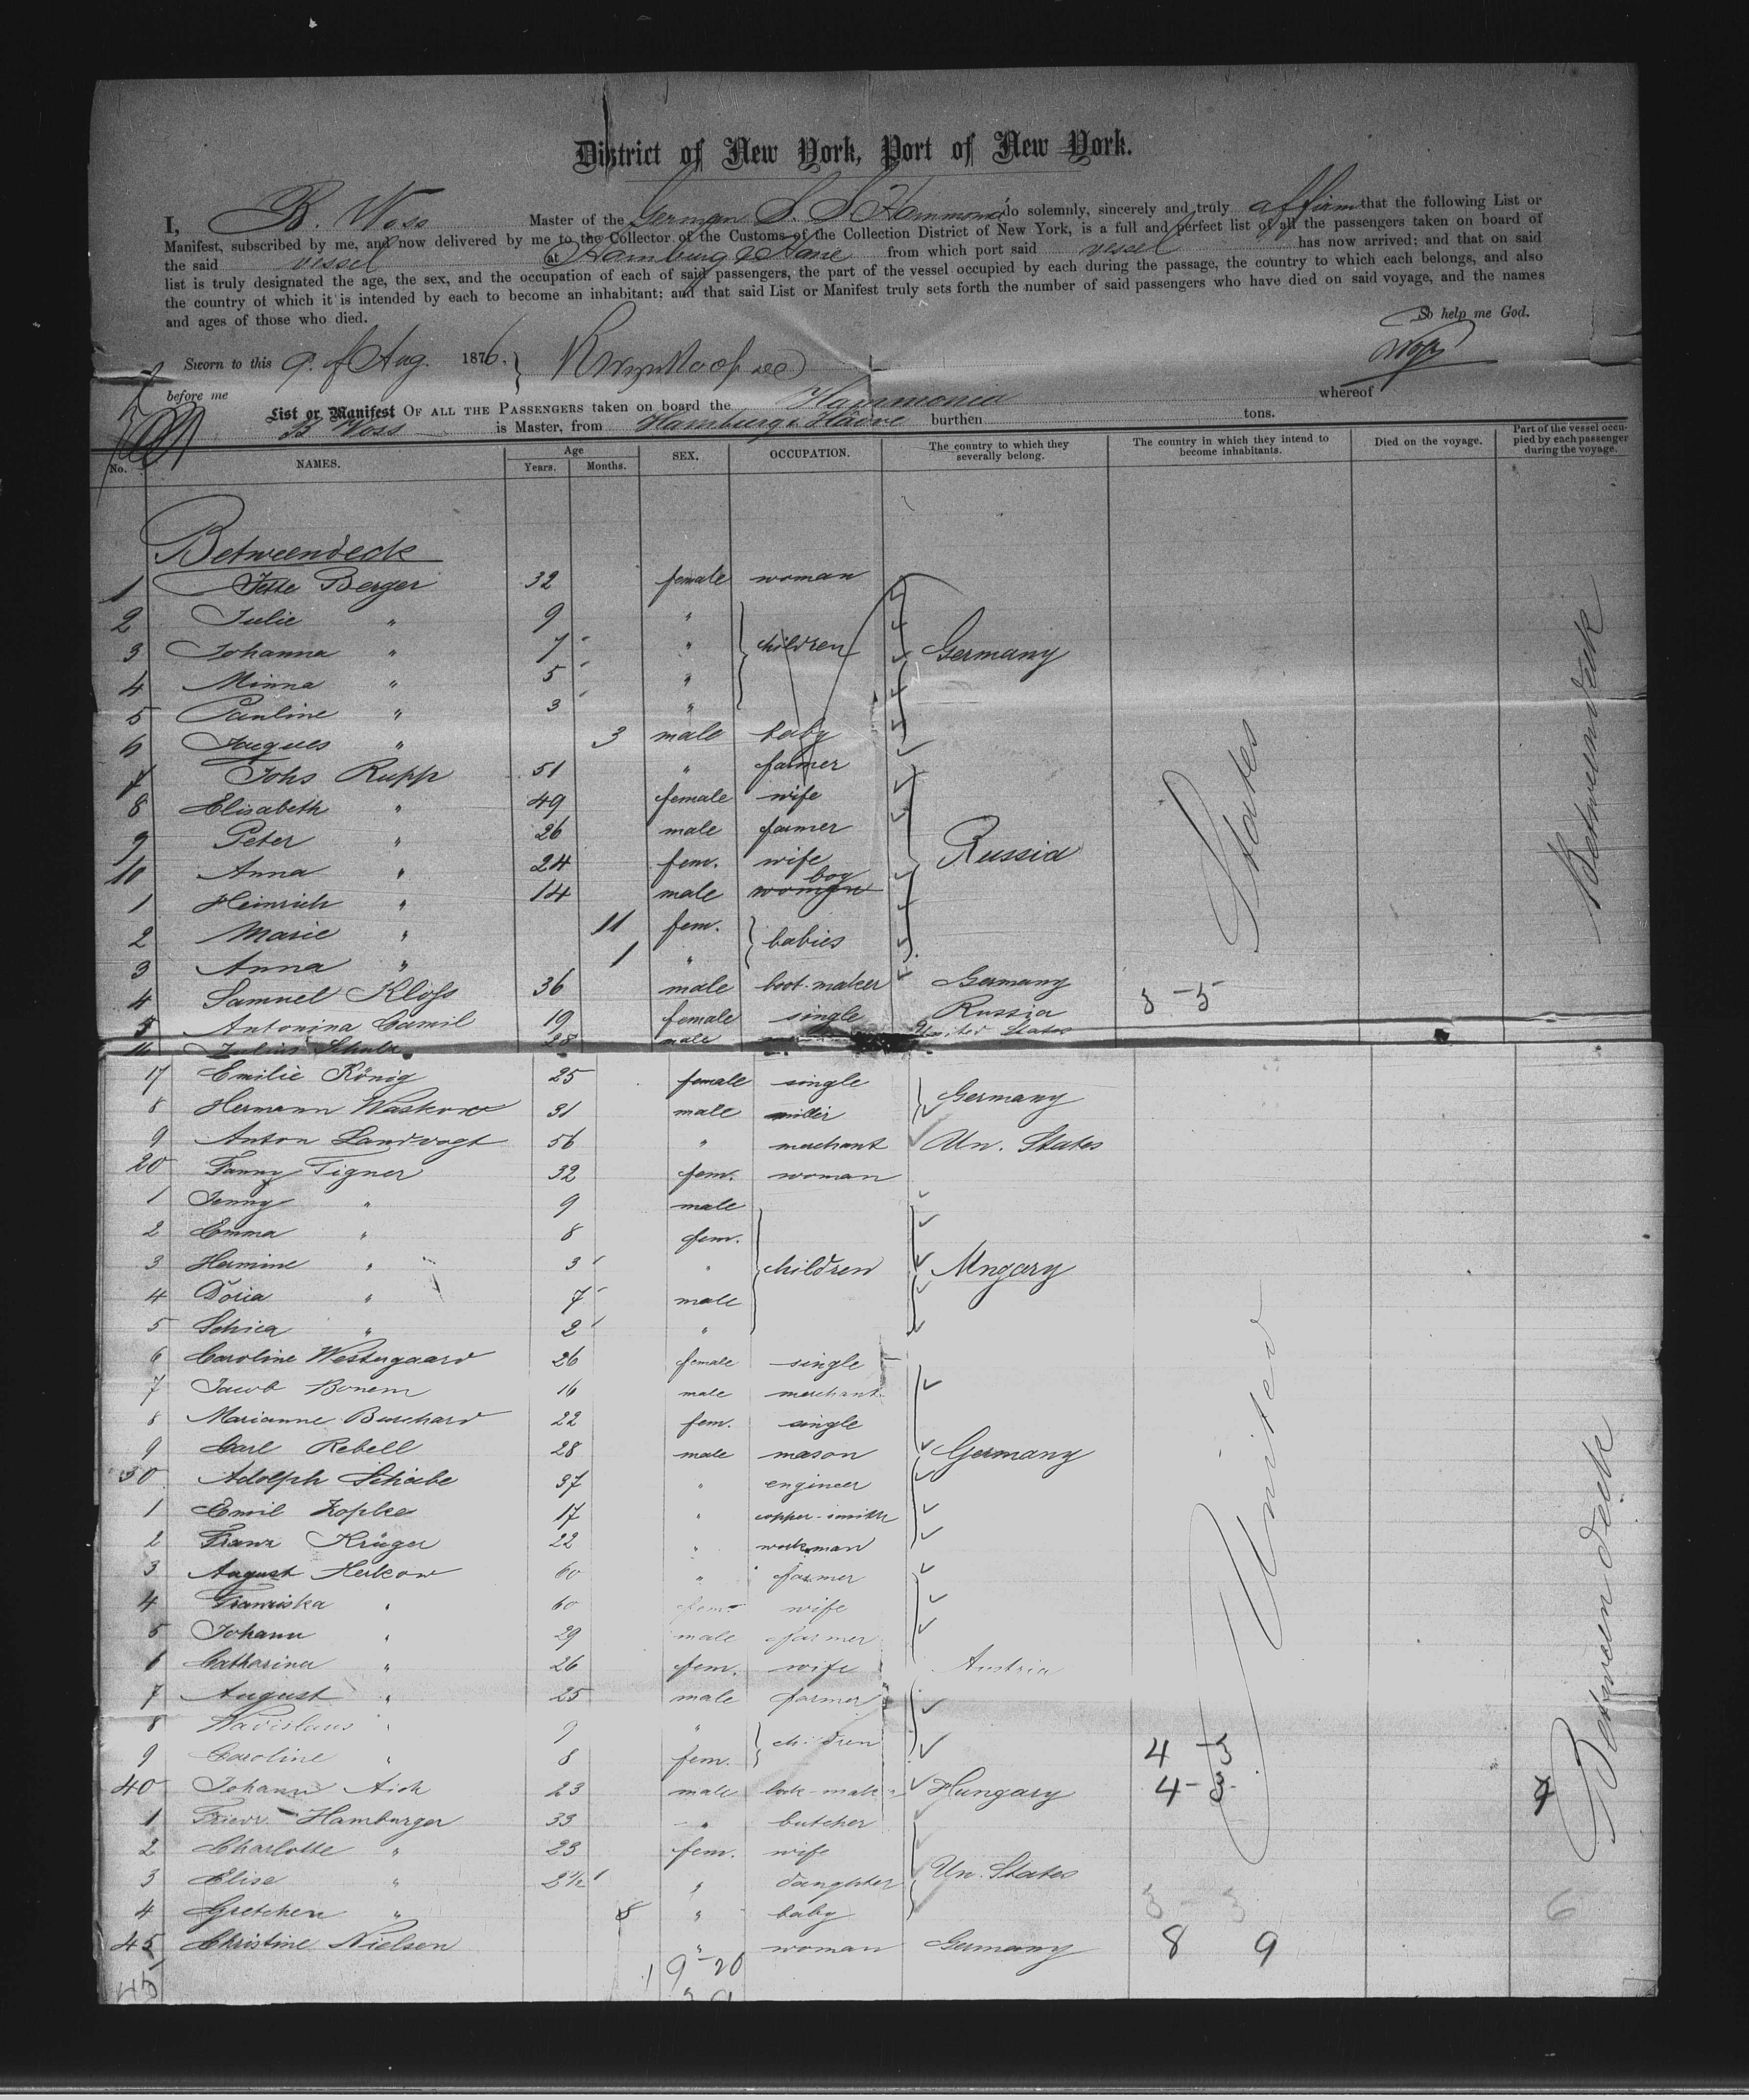 District of New York, Port of New York.
I, B. Voss Master of the German S. S. Hammonia do solemnly, sincerely and truly affirm that the following List or
Manifest, subscribed by me, and now delivered by me to the Collector of the Customs of the Collection District of New York, is a full and perfect list of all the passengers taken on board of
the said vessel at Hamburg & Havre from which port said vessel has now arrived; and that on said
list is truly designated the age, the sex, and the occupation of each of said passengers, the part of the vessel occupied by each during the passage, the country to which each belongs, and also
the country of which it is intended by each to become an inhabitant; and that said List or Manifest truly sets forth the number of said passengers who have died on said voyage, and the names
and ages of those who died. So help me God.
Sworn to this 9. of Aug. 1876. Voss
before me
List or Manifest OF ALL THE PASSENGERS taken on board the Hammonia whereof
B Voss is Master, from Hamburg & Havre burthen tons.
No. NAMES. Age Years. Months. SEX. OCCUPATION. The country to which they severally belong. The country in which they intend to become inhabitants. Died on the voyage. Part of the vessel occupied by each passenger during the voyage.
Betweendeck
1 Jette Berger 32 female woman
2 Julie " 9 "
3 Johanna " 7 " children Germany
4 Minna " 5 "
5 Pauline " 3 "
6 Jaques " 3 male baby
7 Johs Rupp 51 " farmer
8 Elisabeth " 49 female wife
9 Peter " 26 male farmer
10 Anna " 24 fem. wife Russia
1 Heinrich " 14 male woman boy
2 Marie " 11 fem.
3 Anna " 1 " babies
4 Samuel Kloss 36 male boot-maker Germany 3-5
5 Antonina Camil 19 female single Russia
16 Julius Schulz 28 male United States
17 Emilie König 25 female single
8 Hermann Waskow 31 male miller Germany
9 Anton Landvogt 56 " merchant Un. States
20 Fanny Tigner 32 fem. woman
1 Jenny " 9 male
2 Emma " 8 fem.
3 Hermine " 3 " children Ungary
4 Doria " 7 male
5 Schica " 2 "
6 Caroline Westergaard 26 female single
7 Jacob Bonem 16 male merchant
8 Marianne Burchard 22 fem. single
9 Carl Rebell 28 male mason Germany
30 Adolph Schiebe 37 " engineer
1 Emil Kopke 17 " copper-smith
2 Franz Krüger 22 " workman
3 August Herkow 60 " farmer
4 Franziska " 60 fem. wife
5 Johann " 29 male farmer
6 Catharina " 26 fem. wife Austria
7 August " 25 male farmer
8 " 9 "
9 Caroline " 8 fem. children 4-5
40 Johann Aich 23 male Hungary 4-3
1 Friedr Hamburger 33 " butcher
2 Charlotte " 23 fem. wife
3 Elise " 2 1/2 " daughter Un. States
4 Gretchen " 8 " baby 3-3 6
45 Christine Nielsen " woman Germany 8 9
45 19-20
United States
Betweendeck
Betweendeck